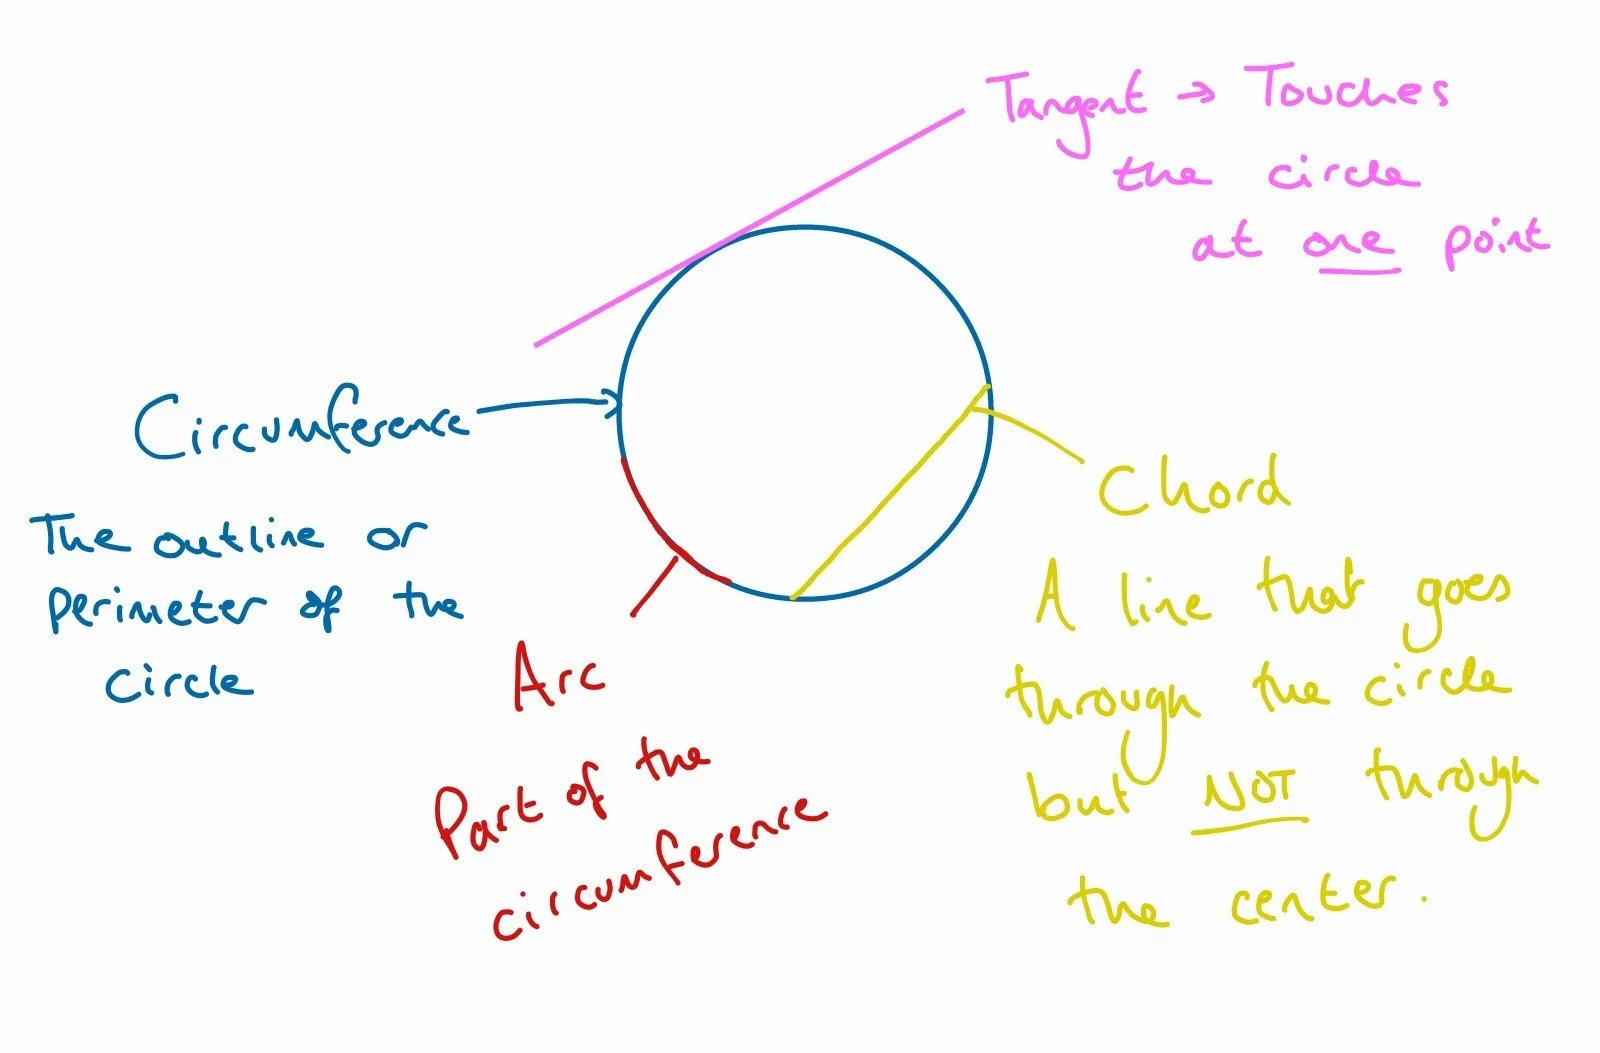 Tangent → Touches
the circle
at one point
Circumference
The outline or
perimeter of the
circle
Arc
Part of the
circumference
Chord
A line that goes
through the circle
but NOT through
the center.